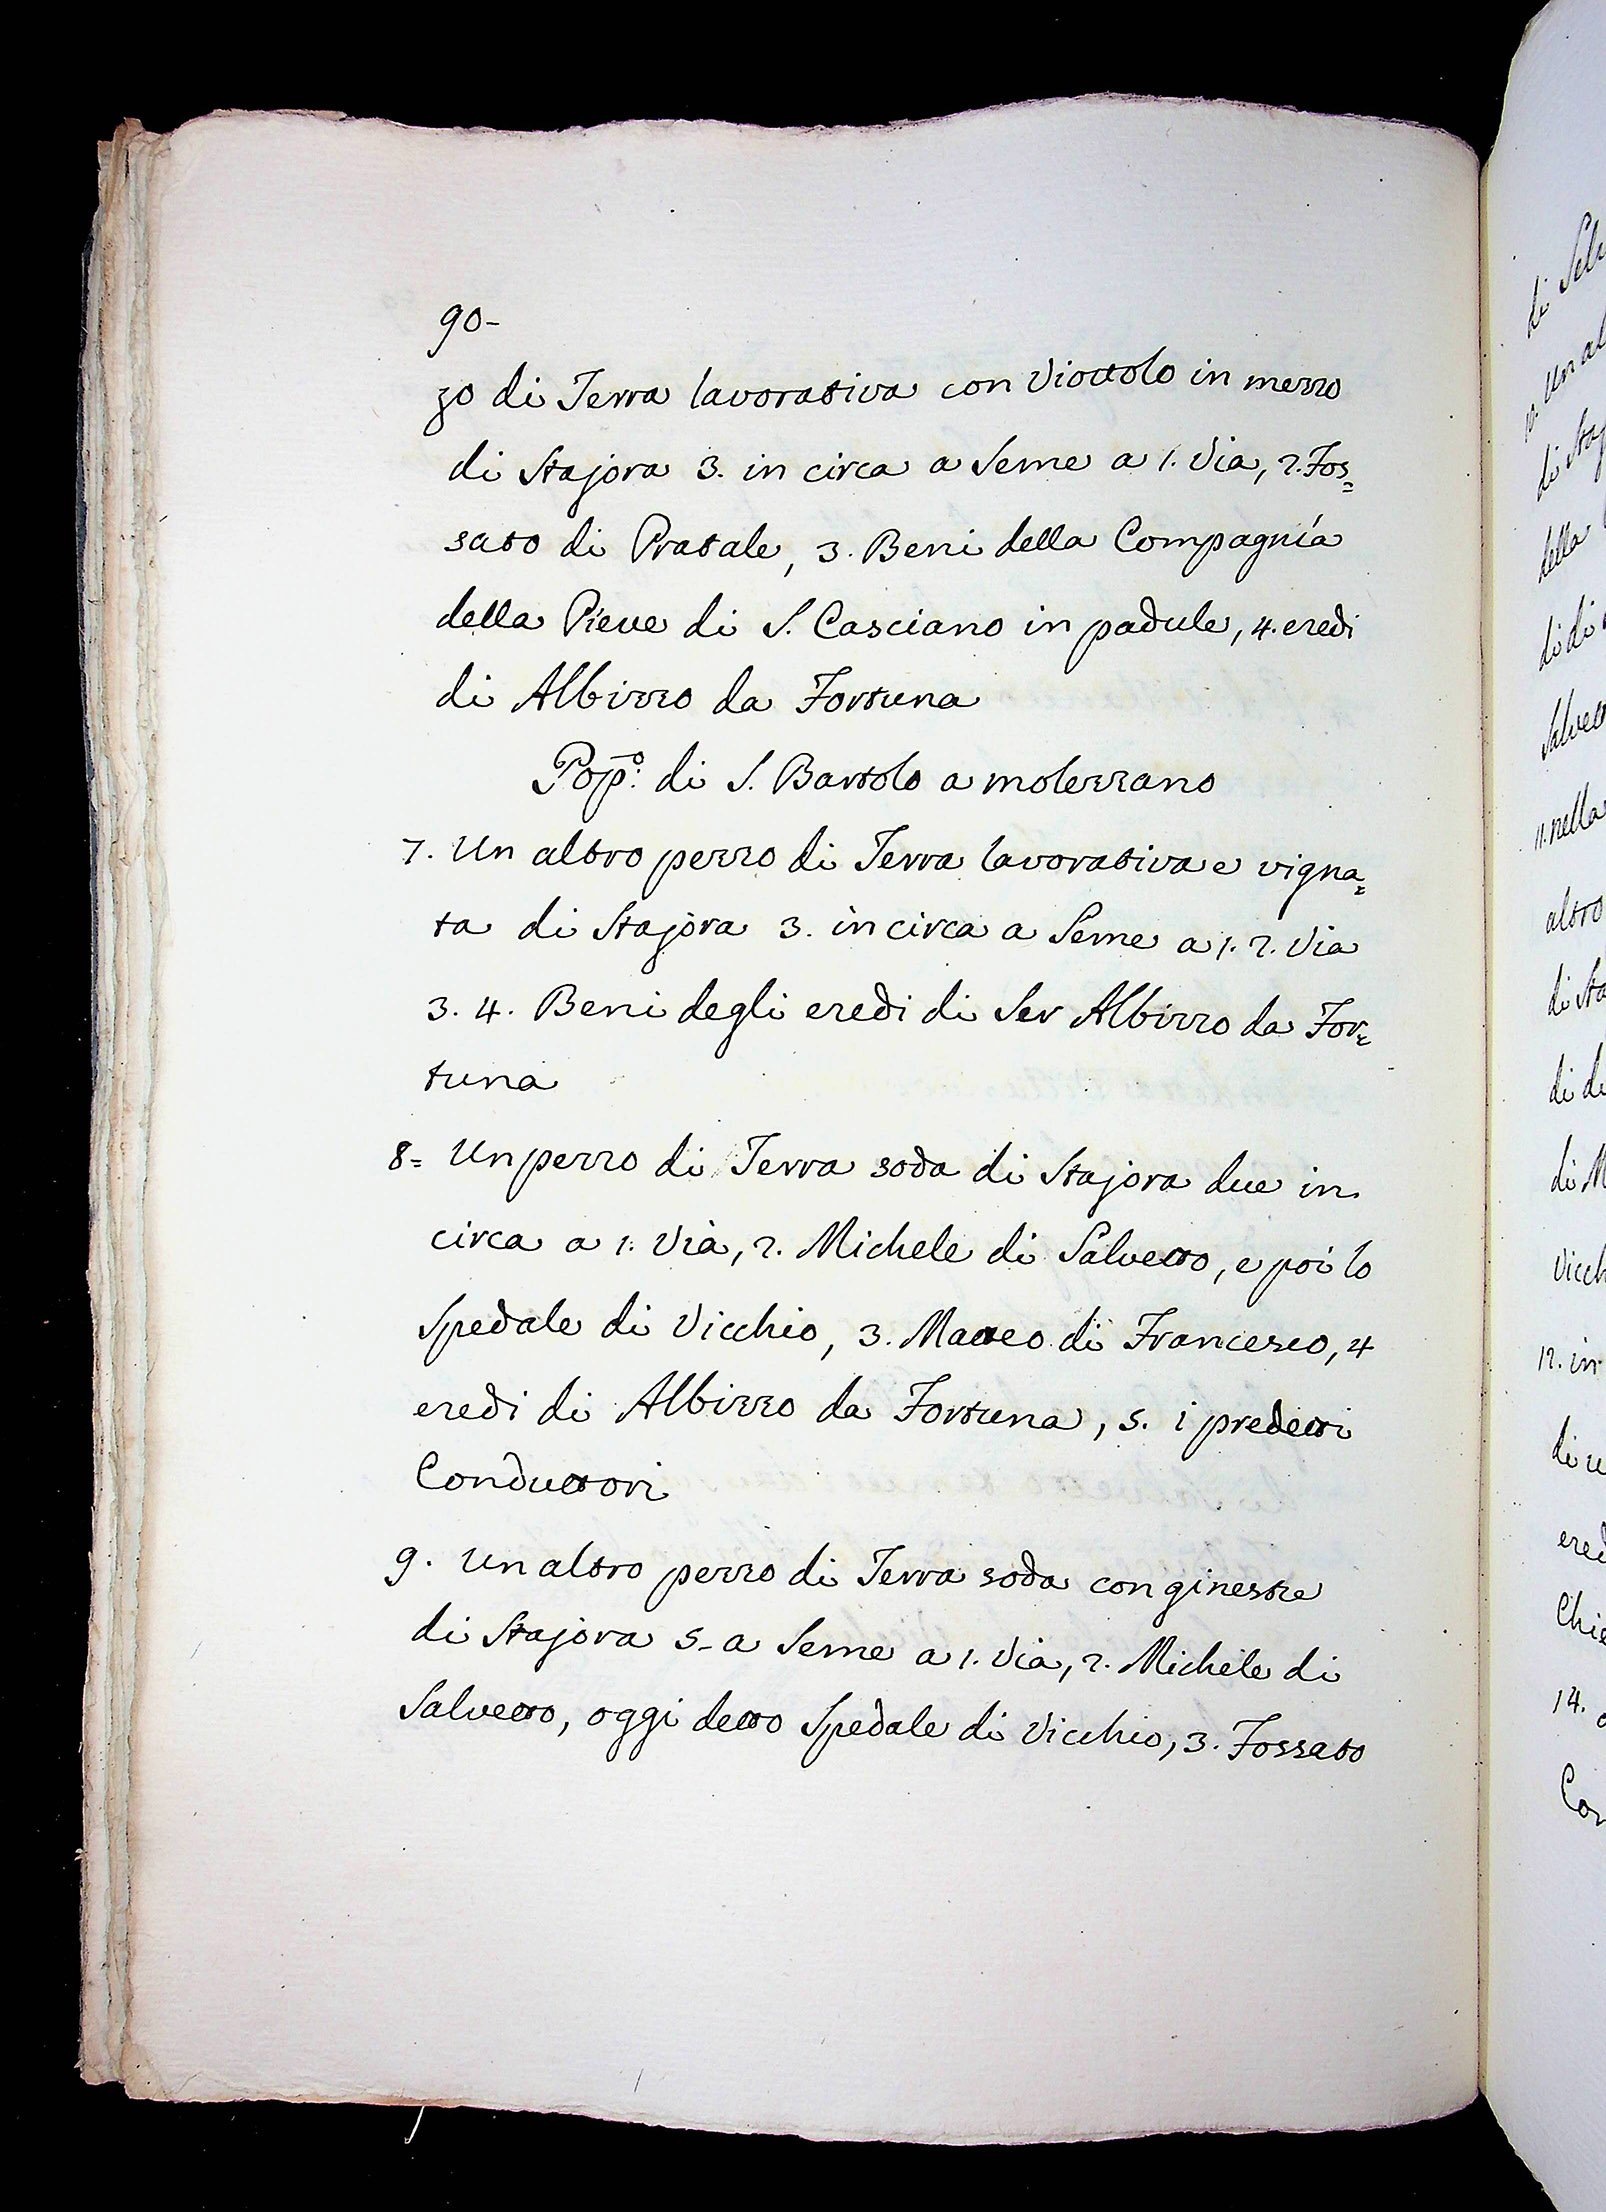 90-
zo di Terra lavorativa con Viottolo in mezzo
di Stajora 3. in circa a Seme a 1. Via, 2. Fos=
sato di Pratale, 3. Beni della Compagnía
della Pieve di S. Casciano in padule, 4. eredi
di Albizzo da Fortuna
Pop:o di S. Bartolo a molezzano
7. Un altro pezzo di Terra lavorativa e vigna=
ta di Stajora 3. in circa a Seme a 1. 2. Via
3. 4. Beni degli eredi di Ser Albizzo da For=
tuna
8= Un pezzo di Terra soda di Stajora due in
circa a 1. Via, 2. Michele di Salvetto, e poi lo
Spedale di Vicchio, 3. Matteo di Francesco, 4
eredi di Albizzo da Fortuna, 5. i predetti
Conduttori
9. Un altro pezzo di Terra soda con ginestre
di Stajora 5- a Seme a 1. Via, 2. Michele di
Salvetto, oggi detto Spedale di Vicchio, 3. Fossato
di
Un al
di Staj
della
di di
Salvett
11. nella
altro
di Sta
di di
di M
Vicch
12. in
di
ered
Chie
14.
Con